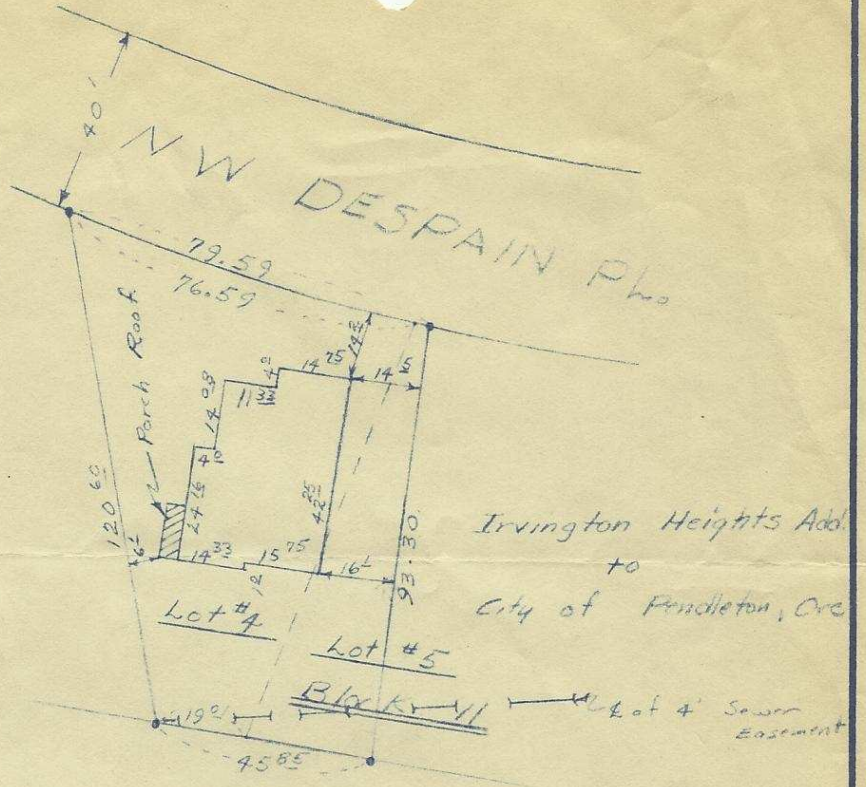 40'
NW DESPAIN PL.
79.59
76.59
Porch Roof
14 08
11 33
4 0
14 75
14 2
14 5
4 0
24 16
42 25
120 60
6 1
14 33
12
15 75
16 1
93.30
Irvington Heights Add.
to
City of Pendleton, Ore
Lot #4
Lot #5
Block 11
℄ of 4' Sewer
Easement
19 01
45 85